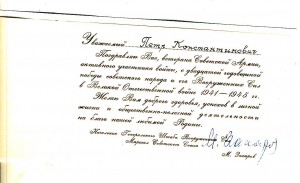 Уважаемый Петр Константинович
Поздравляю Вас, ветерана Советской Армии,
активного участника войны, с двадцатой годовщиной
победы советского народа и его Вооруженных Сил
в Великой Отечественной войне 1941—1945 гг.
Желаю Вам доброго здоровья, успехов в личной
жизни и общественно-полезной деятельности
на благо нашей любимой Родины.
Начальник Генерального Штаба Вооруженных Сил
Маршал Советского Союза
М. Захаров